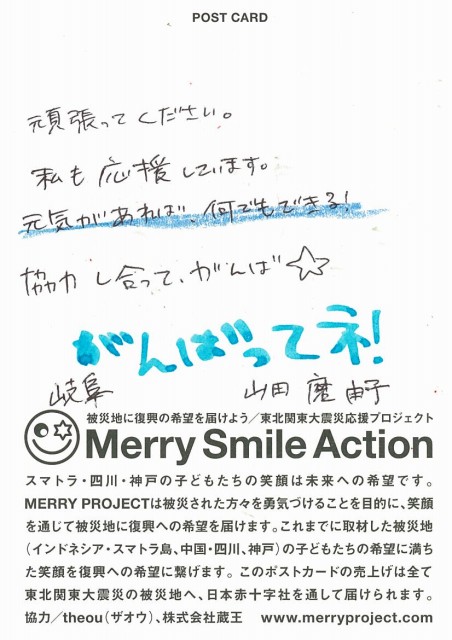 POST CARD
頑張ってください。
私も応援しています。
元気があれば、何でもできる!
協力し合って、がんば☆
がんばってネ!
岐阜 山田 磨由子
被災地に復興の希望を届けよう／東北関東大震災応援プロジェクト
Merry Smile Action
スマトラ・四川・神戸の子どもたちの笑顔は未来への希望です。
MERRY PROJECTは被災された方々を勇気づけることを目的に、笑顔
を通じて被災地に復興への希望を届けます。これまでに取材した被災地
（インドネシア・スマトラ島、中国・四川、神戸）の子どもたちの希望に満ち
た笑顔を復興への希望に繋げます。このポストカードの売上げは全て
東北関東大震災の被災地へ、日本赤十字社を通して届けられます。
協力／theou（ザオウ）、株式会社蔵王 www.merryproject.com